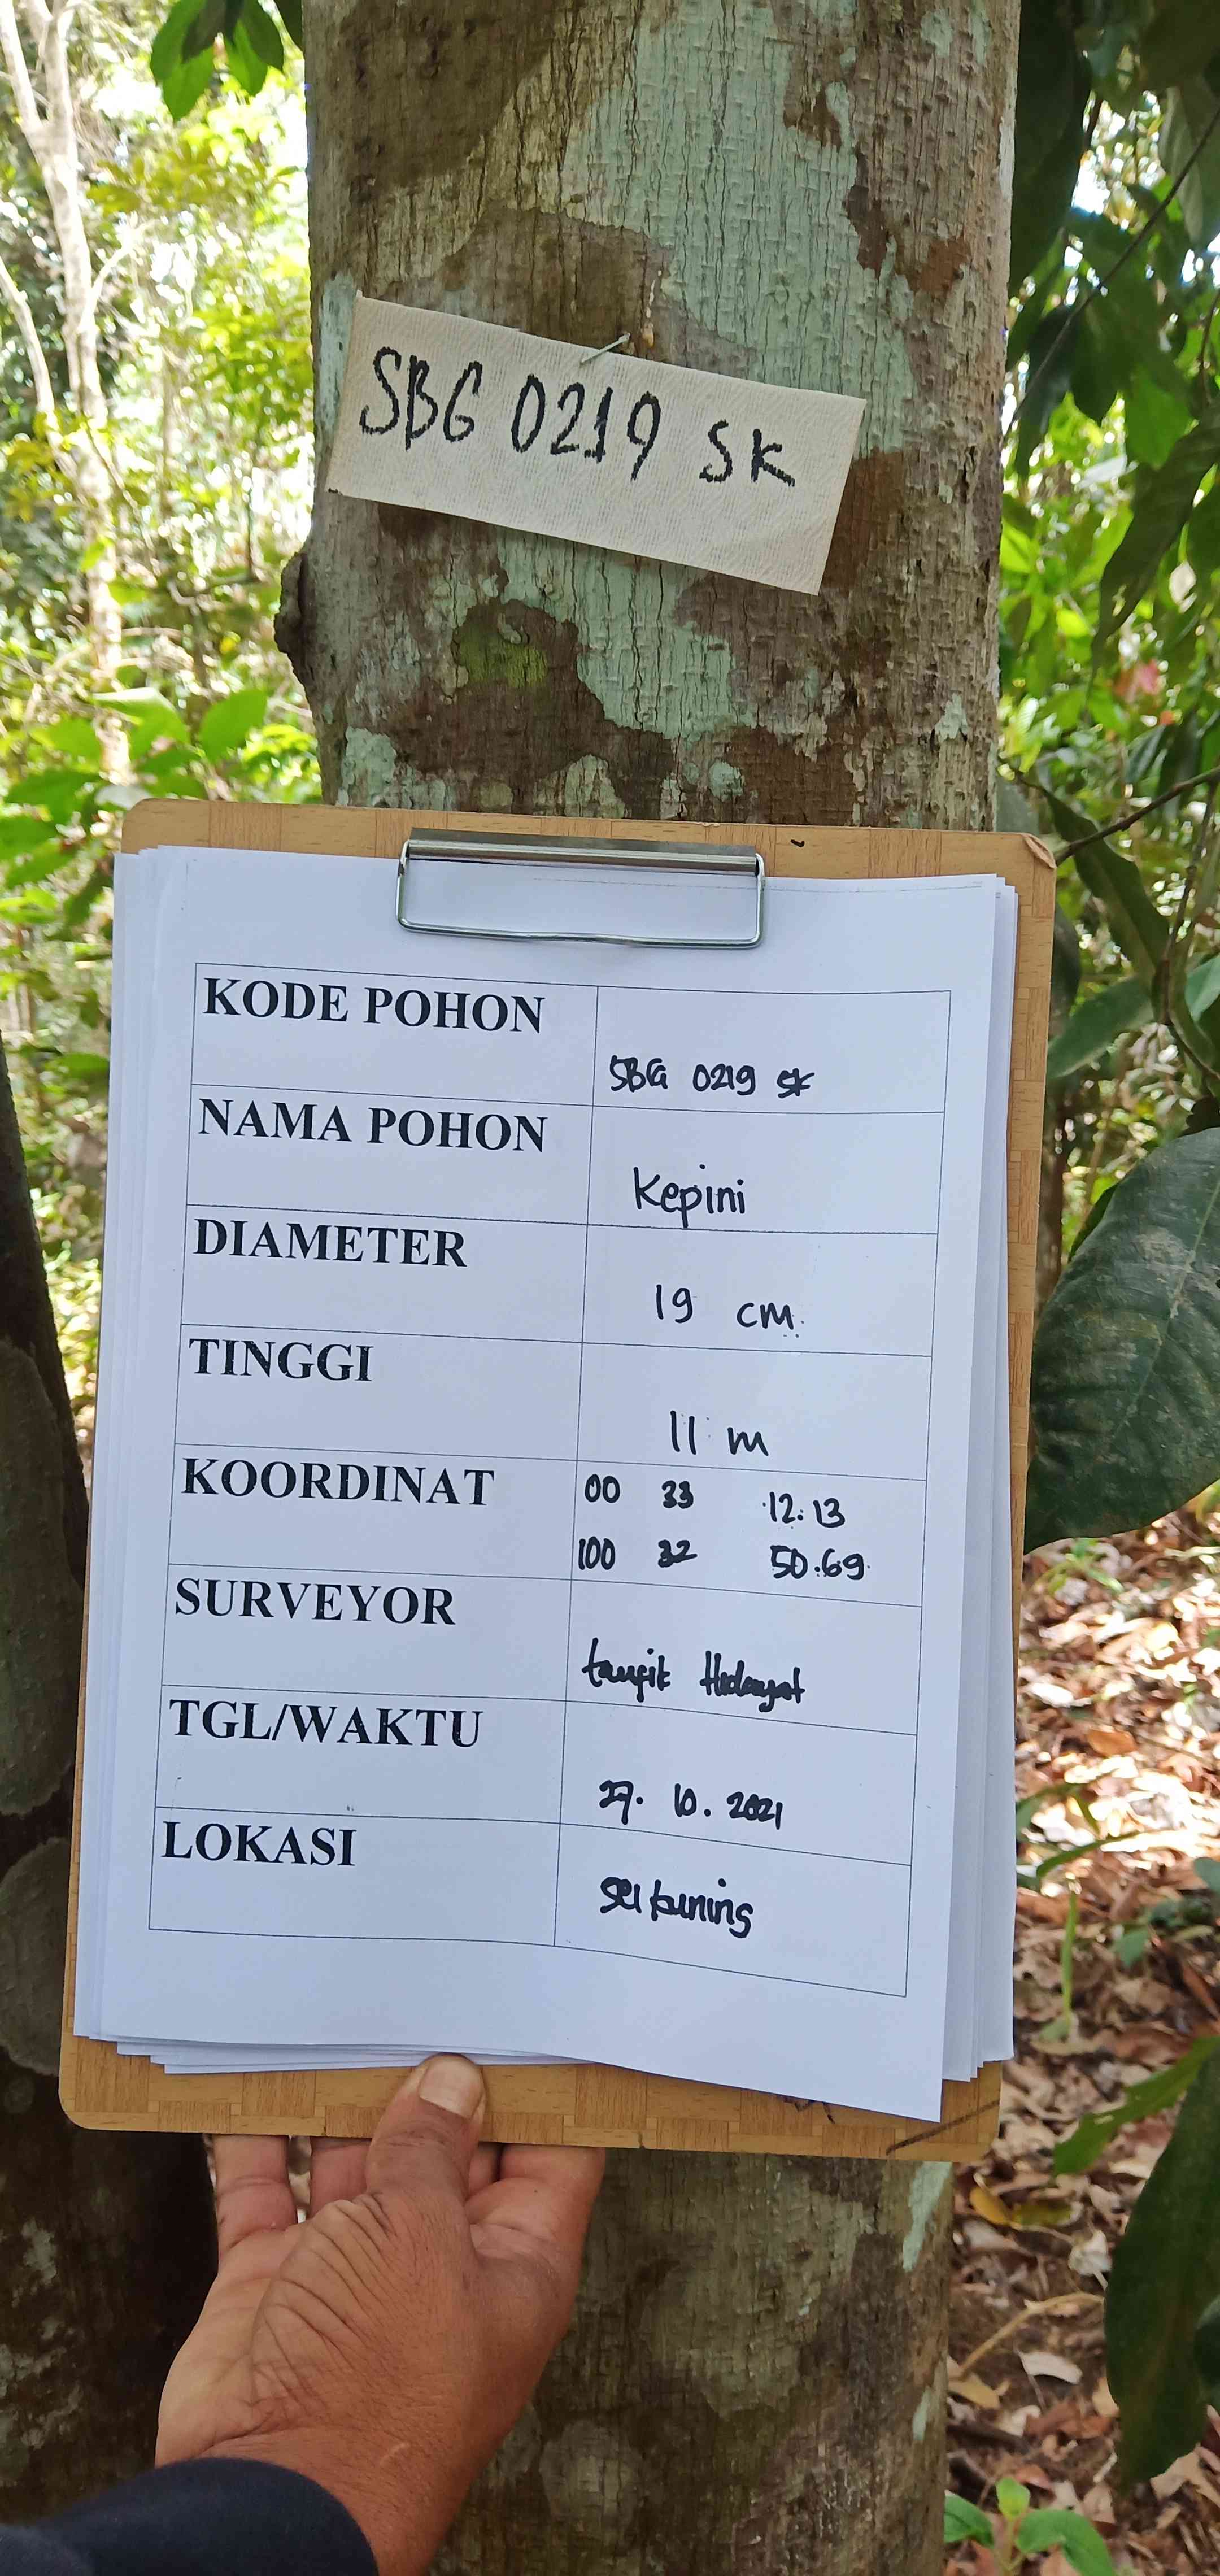 SBG 0219 SK
KODE POHON
SBG 0219 SK
NAMA POHON
Kepini
DIAMETER
19 cm.
TINGGI
11 m
KOORDINAT
00 33 12.13
100 32 50.69
SURVEYOR
taufik Hidayat
TGL/WAKTU
27. 10. 2021
LOKASI
kuning